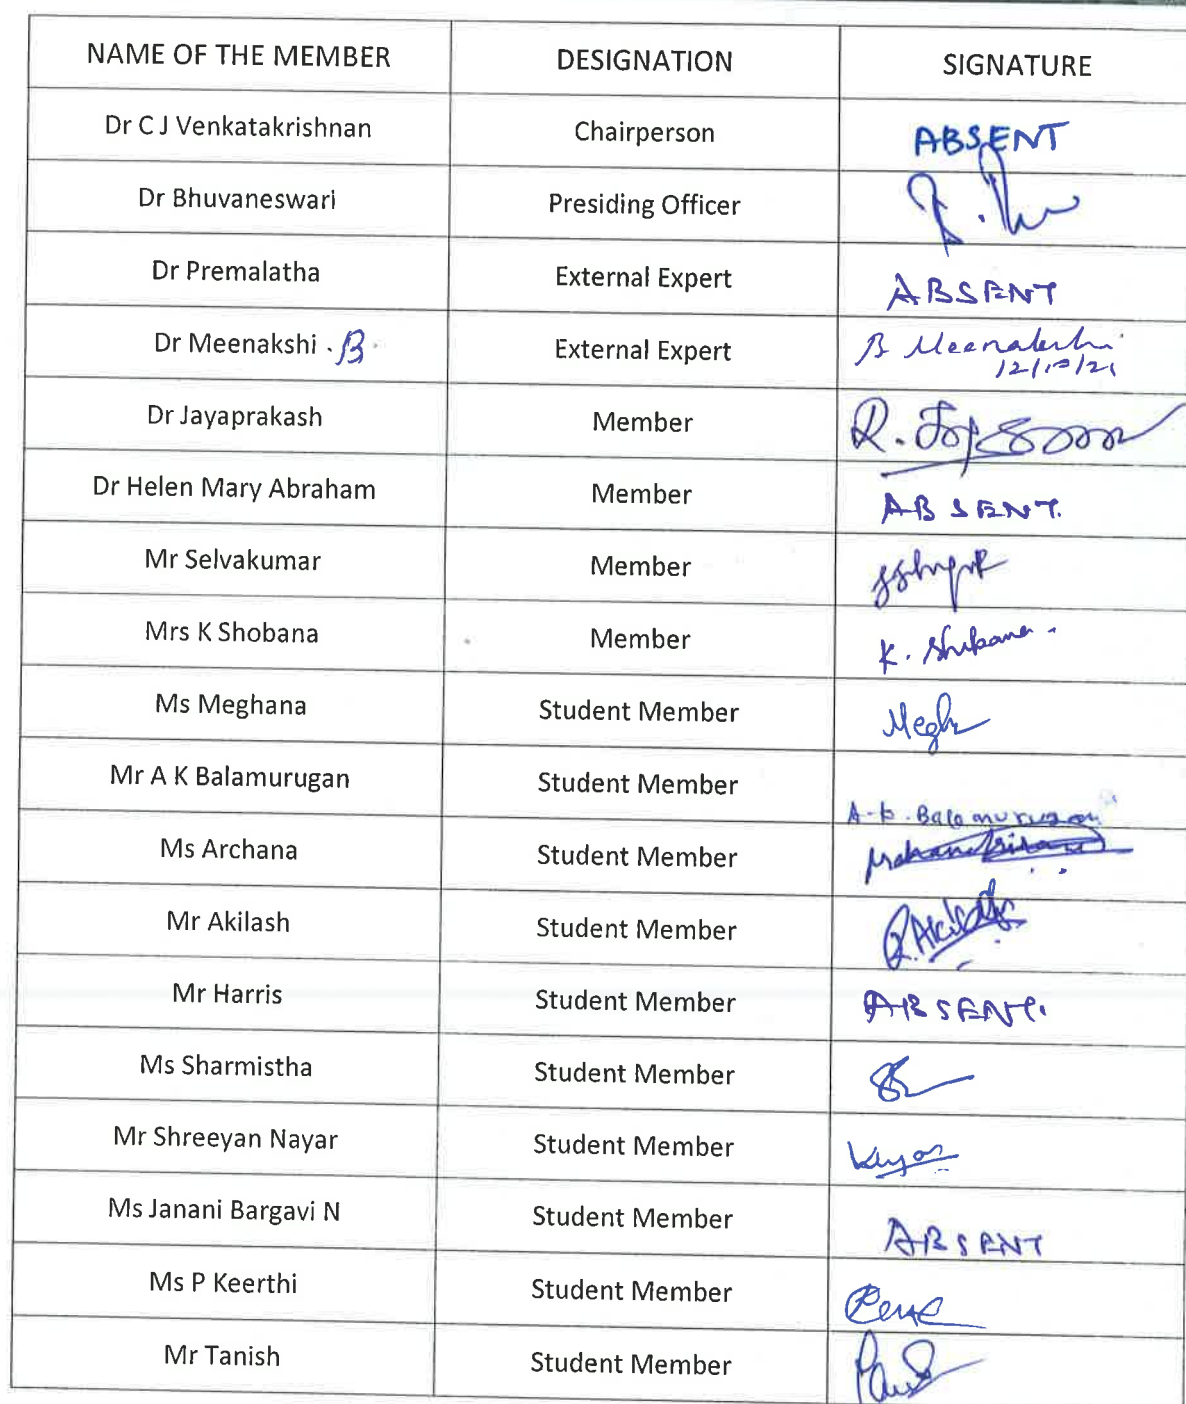 NAME OF THE MEMBER DESIGNATION SIGNATURE
Dr C J Venkatakrishnan Chairperson ABSENT
Dr Bhuvaneswari Presiding Officer
Dr Premalatha External Expert ABSENT
Dr Meenakshi . B. External Expert B Meenakshi
12/10/21
Dr Jayaprakash Member R.
Dr Helen Mary Abraham Member ABSENT.
Mr Selvakumar Member
Mrs K Shobana Member K. Shobana.
Ms Meghana Student Member Megh
Mr A K Balamurugan Student Member A-k. Balamurugan
Ms Archana Student Member
Mr Akilash Student Member R. Akilash
Mr Harris Student Member ABSENT.
Ms Sharmistha Student Member
Mr Shreeyan Nayar Student Member
Ms Janani Bargavi N Student Member ABSENT
Ms P Keerthi Student Member
Mr Tanish Student Member